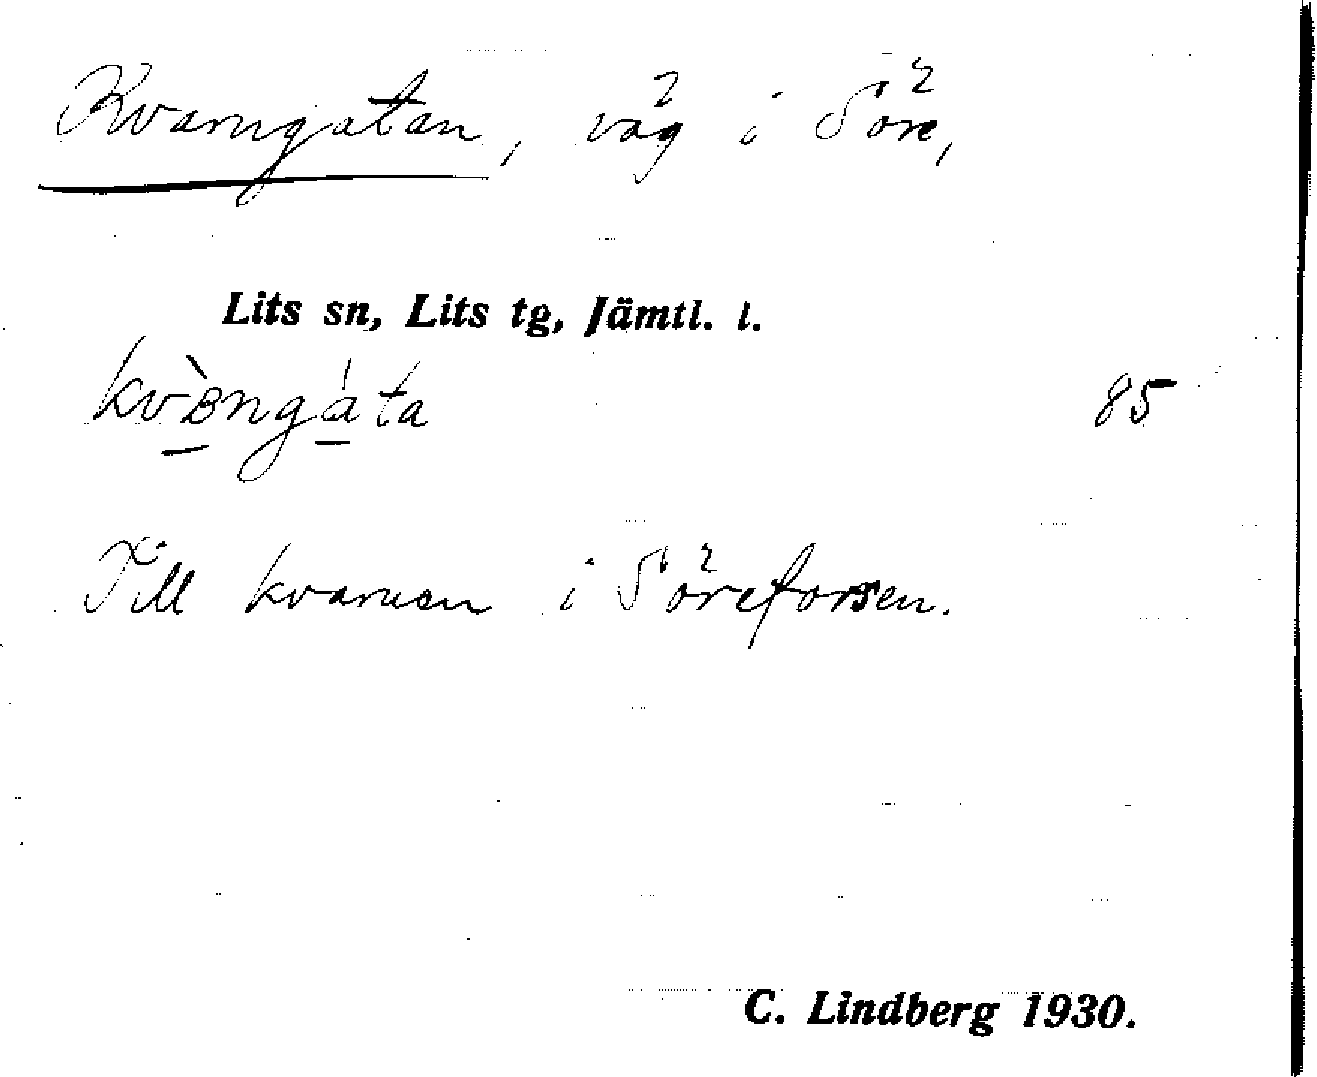 Kvarngatan, väg i Söre,
Lits sn, Lits tg, Jämtl. l.
kvὲngáta 85
Till kvarnen i Söreforsen.
C. Lindberg 1930.